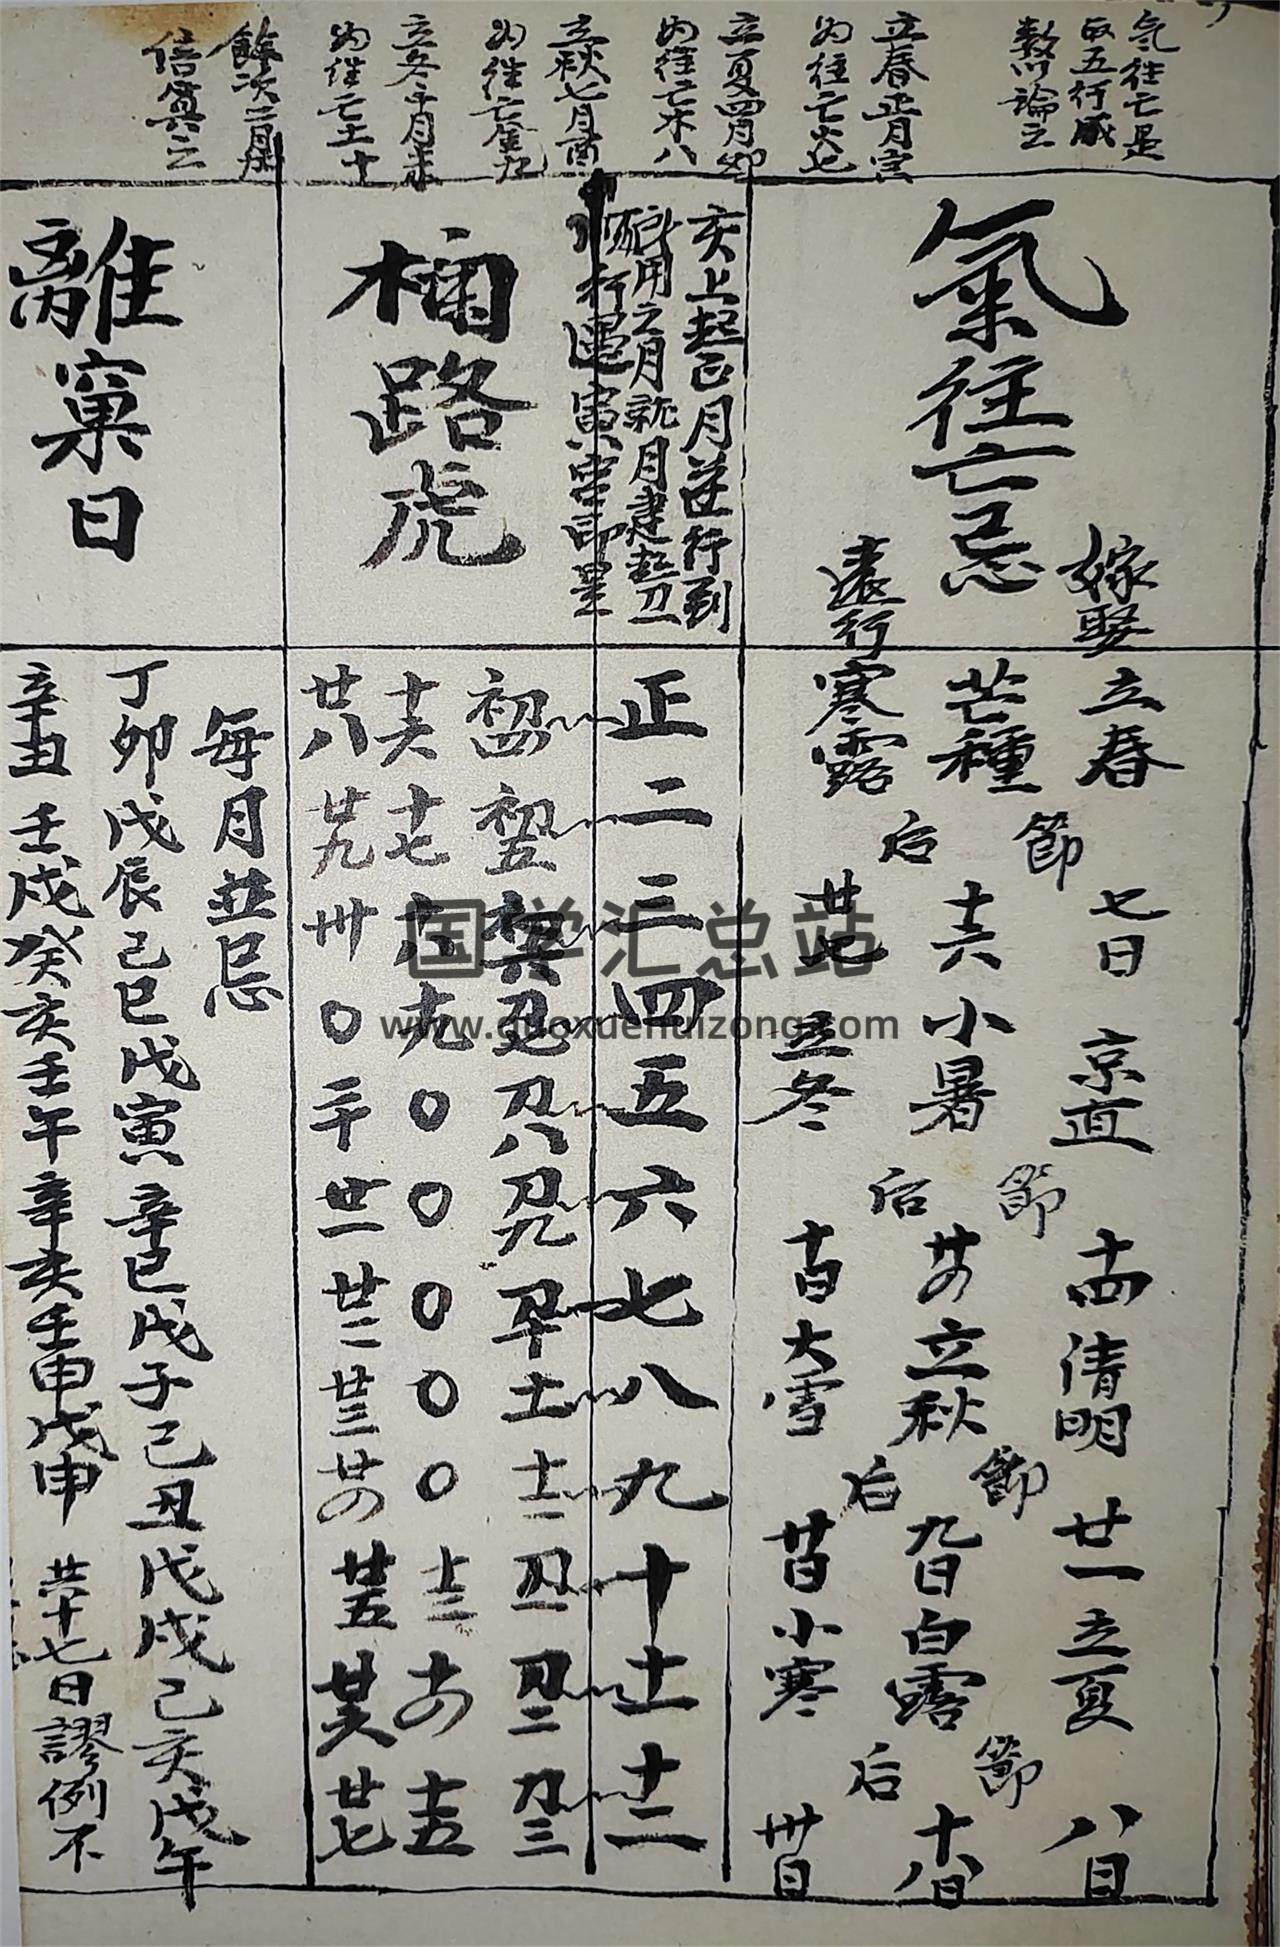 氣往亡是
取五行成
數論之
立春正月寅
為往亡火七
立夏四月卯
為往亡木八
立秋七月酉
為往亡金九
立冬十月未
為往亡土十
餘次二月
倍算之
氣往亡忌
嫁娶
遠行
立春
七日
京直
十四
清明
廿一
立夏
八日
節
節
節
節
芒種
十六
小暑
廿の
立秋
九日
白露
十八日
后
后
后
后
寒露
廿七
立冬
十日
大雪
廿日
小寒
卅日
亥上起正月逆行到
用之月就月建起刀一
行遇寅宮即是
路虎
正二三四五六七八九十十一十二
初四
初五
初六
刀七
刀八
刀九
刀十
十一
十二
刀一
刀二
刀三
十六
十七
十八
十九
〇
〇
〇
〇
〇
十三
十の
十五
廿八
廿九
卅
〇
二十
廿一
廿二
廿三
廿の
廿五
廿六
廿七
離窠日
每月並忌
丁卯戊辰己巳戊寅辛巳戊子己丑戊戌己亥戊午
辛丑壬戌癸亥壬午辛亥壬申戊申
廿十七日謬例不
国学汇总站
www.guoxuehuizong.com